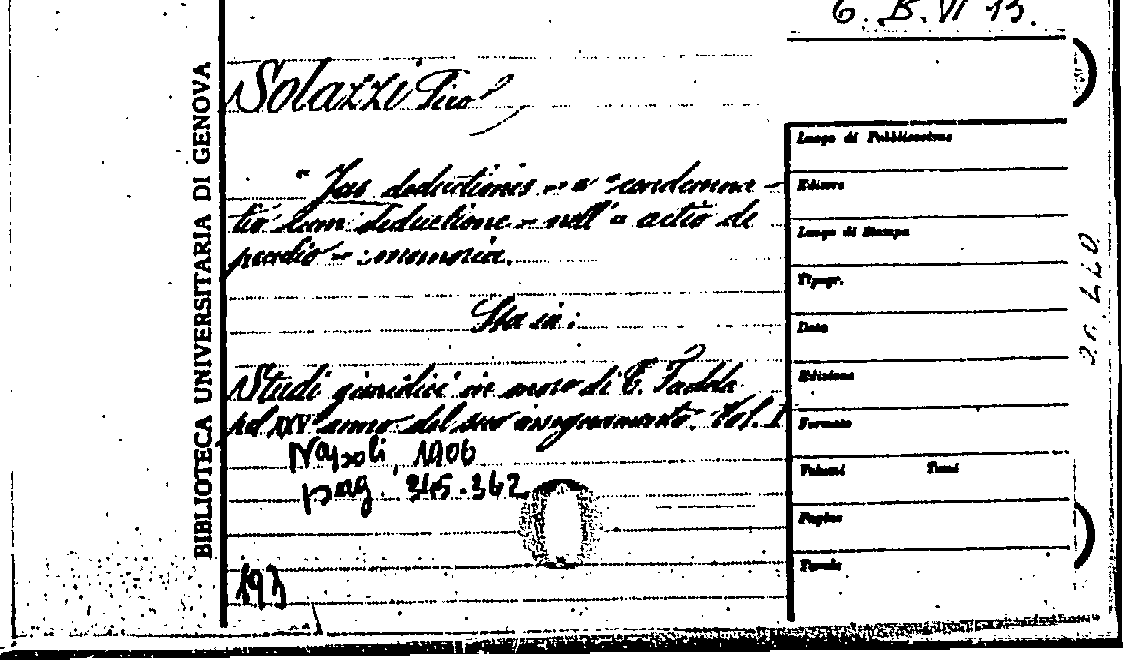 6. B. VI 13.
Solazzi Siro
"Jus deductionis" e "condemna-
tio cum deductione" nell' "actio de
peculio" : memoria.
Sta in:
Studi giuridici in onore di C. Fadda
pel XXV anno del suo insegnamento. Vol. I
Napoli, 1906
pag. 345-362
193
BIBLIOTECA UNIVERSITARIA DI GENOVA
Luogo di Pubblicazione
Editore
Luogo di Stampa
Tipogr.
Data
Edizione
Formato
Volumi Tomi
Pagine
Tavole